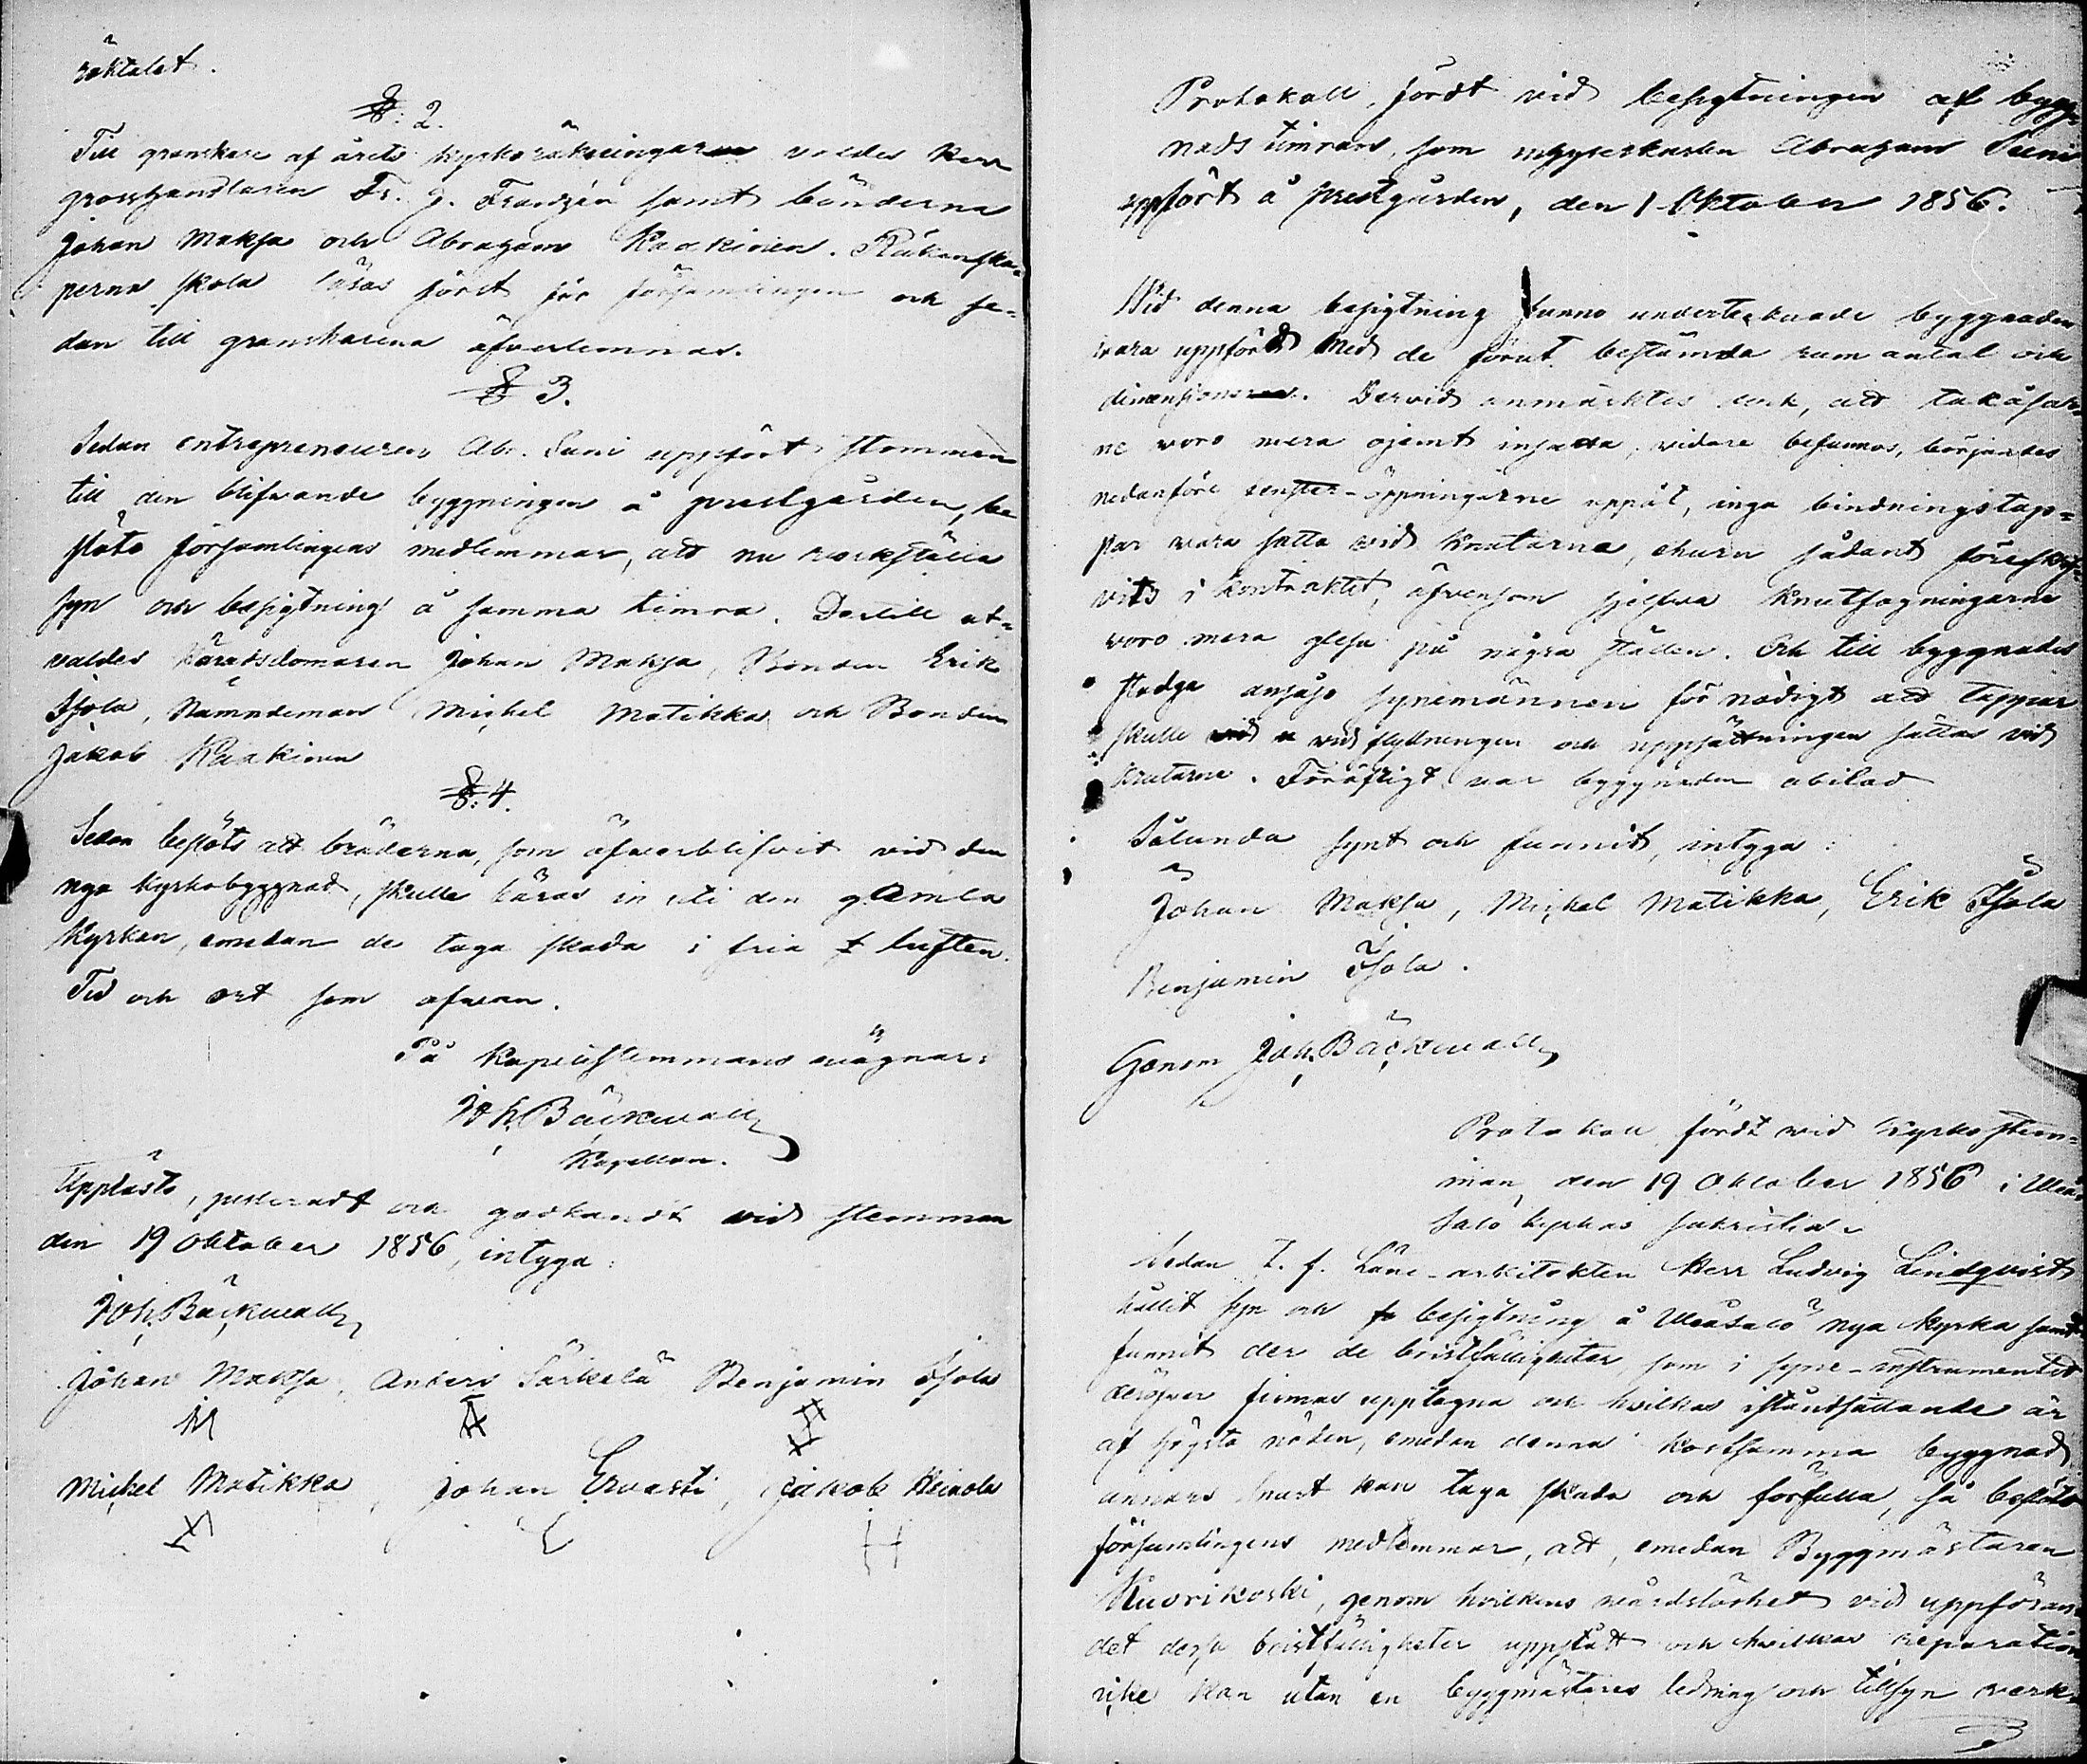 röktalet.
§: 2.
Till granskare af årets kyrkoräkningar valdes Herr
grosshandlaren Fr. J. Franzén samt bönderna
Johan Maksa och Abraham Kaakinen. Räkenska=
perna skola läsas först för församlingen och se=
dan till granskarena öfverlemnas.
§ 3.
Sedan entrepreneuren Abr. Suni uppfört stommen
till den blifvande byggningen å prestgården, be
slöto församlingens medlemmar, att nu verkställa
syn och besigtning å samma timra. Dertill ut=
valdes Häradsdomaren Johan Maksa, Bonden Erik
Isola, Nämndeman Michel Matikka och Bonden
Jakob Kaakinen
§: 4.
Sedan beslöts att bräderna, som öfverblifvit vid den
nya kyrkobyggnad, skulle bäras in uti den gamla
Kyrkan, emedan de taga skada i fria luften.
Tid och ort som ofvan.
På Kapellstemmans vägnar:
Joh. Bäckwall
Kapellan.
Uppläst, justeradt och godkändt vid stemman
den 19 Oktober 1856, intyga:
Joh. Bäckwall
Johan Maksa, Anders Särkelä Benjamin Isola
Michel Matikka, Johan Ervasti, Jakob Heinola
Protokoll, fördt vid besigtningen af bygg=
nads timran, som Abraham Suni
uppfört å prestgården, den 1 Oktober 1856.
Wid denna besigtning funno undertecknade byggnaden
vara uppförd med de förut bestämda rum antal och
dimensioner. Dervid anmärktes dock, att takåsar=
ne voro mera ojemt insatta, vidare befunnos, börjandes
nedanföre fenster-öppningarne uppåt, inga bindningstap=
par vara satta vid knutarna, ehuru sådant föreskrif=
vits i Kontraktet, äfvensom sjelfva Knutfogningarne
voro mera glesa på några ställen. Och till byggnades
stadga ansågo synemännen för nödigt att tappar
skulle vid flyttningen och uppsättningen sättas vid
knutarne. Föröfrigt var byggnaden
Sålunda synt och funnit, intyga:
Johan Maksa, Michel Matikka, Erik Isola
Benjamin Isola.
Genom Joh. Bäckwall
Protokoll fördt vid Kyrkostem=
man, den 19 Oktober 1856 i Uleå
salo kyrkas sakristia.
Sedan T. f. Läne-arkitekten Herr Ludvig Lindqvist
hållit syn och besigtning å Uleåsalo nya kyrka samt
funnit der de bristfälligheter, som i syne-instrumentet
deröfver finnas upptagna och hvilkas iståndsättande är
af högsta nöden, emedan denna kostsamma byggnad
annars snart kan taga skada och förfalla, så beslöto
församlingens medlemmar, att, emedan Byggmästaren
Kuorikoski, genom hvilkens vårdslöshet vid uppföran=
det dessa bristfälligheter uppstått och hvilkas reparation
icke kan utan en byggmästares ledning och tillsyn verk=